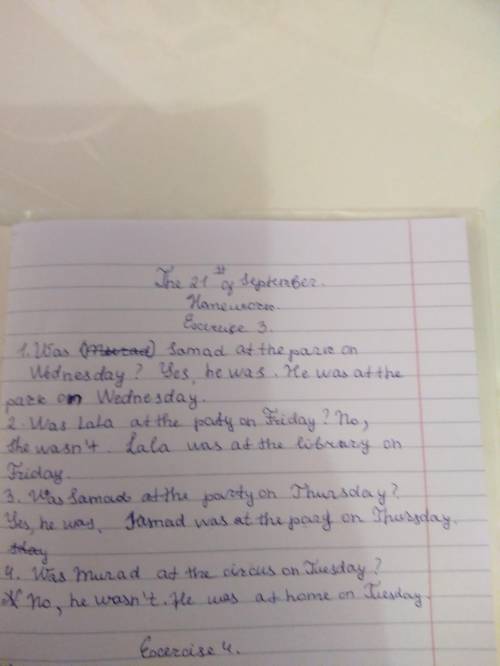 The 21st of September.
Homework.
Exercise 3.
1. Was (Murad) Samad at the park on
Wednesday? Yes, he was. He was at the
park on Wednesday.
2. Was Lala at the paty on Friday? No,
she wasn't. Lala was at the library on
Friday.
3. Was Samad at the party on Thursday?
Yes, he was. Samad was at the party on Thursday.
4. Was Murad at the circus on Tuesday?
No, he wasn't. He was at home on Tuesday.
Exercise 4.